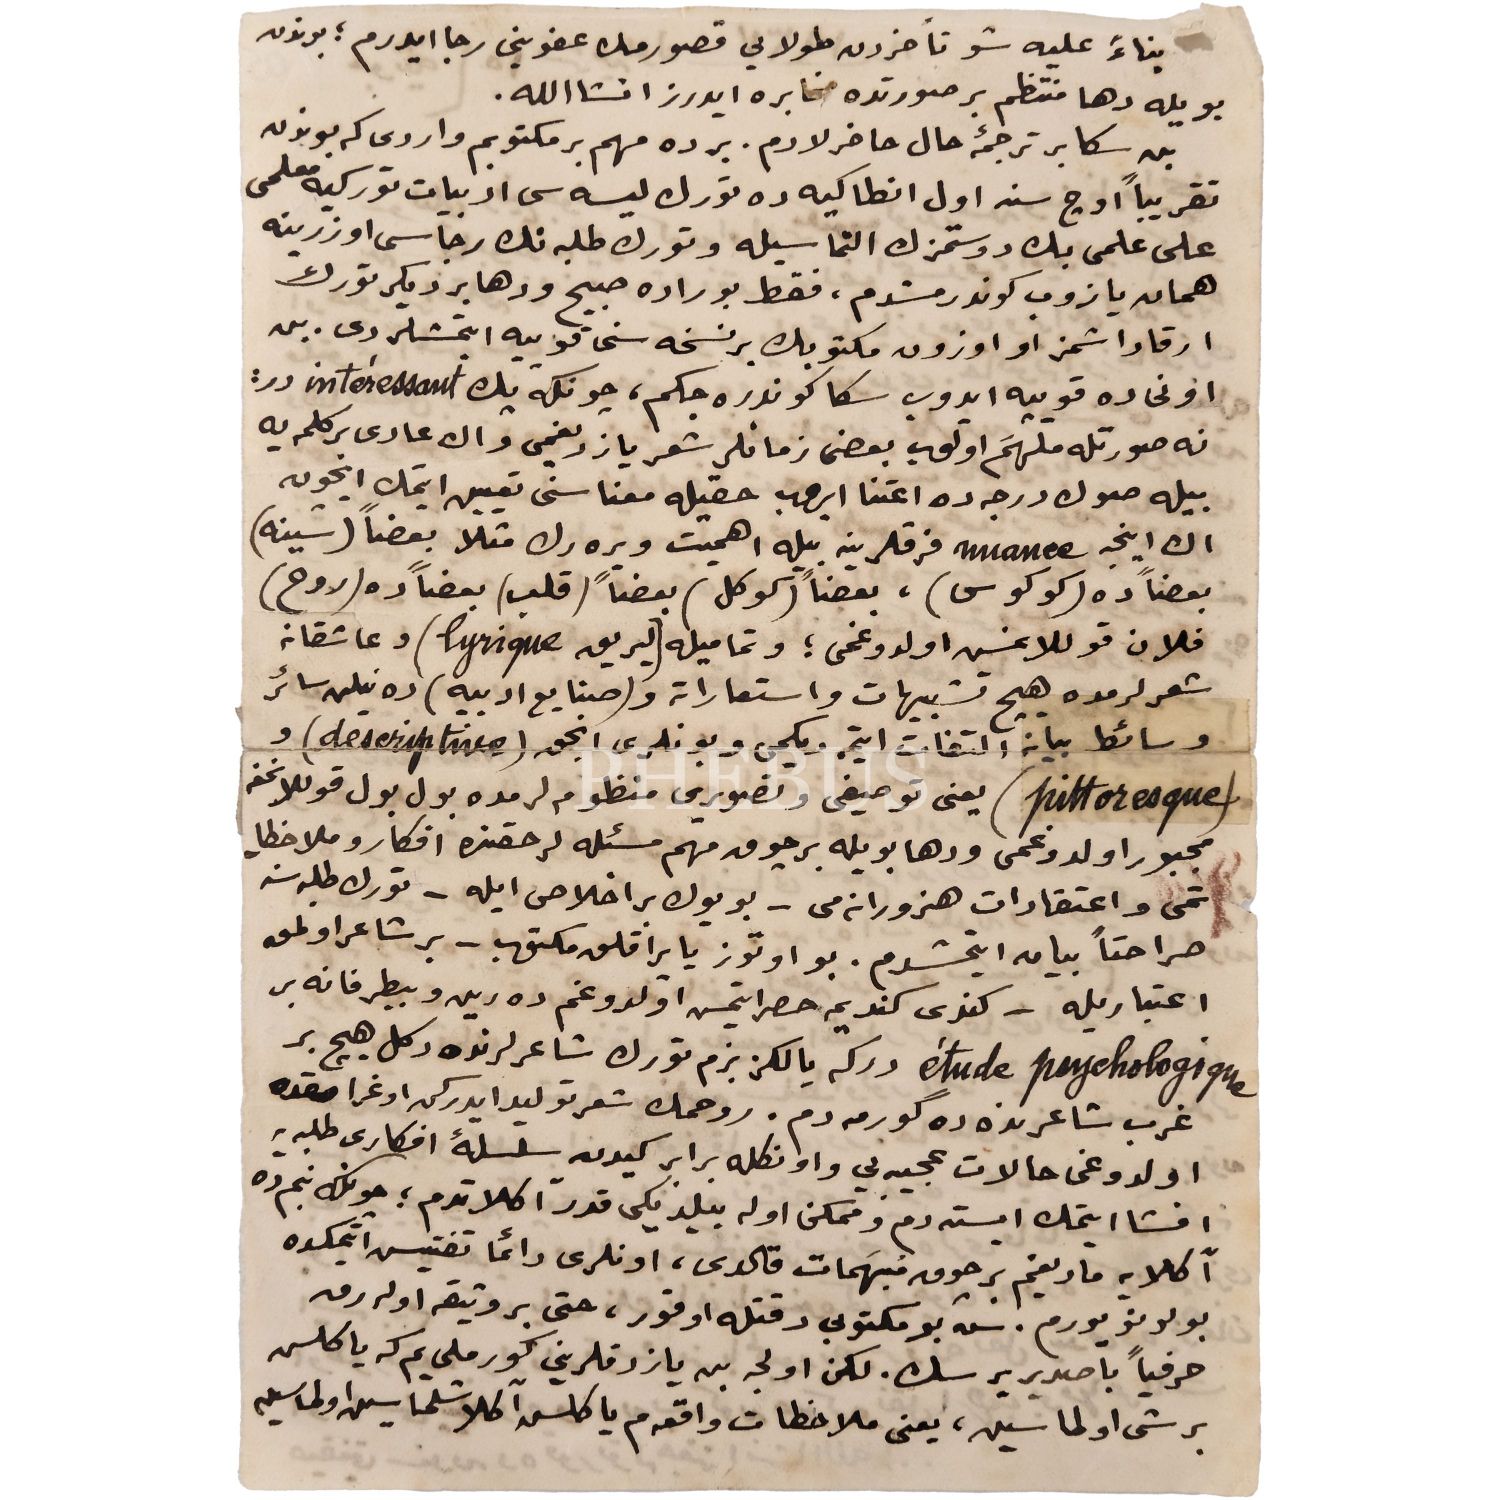 بناءً عليه شو تأخردن طولايى قصورمك عفوينى رجا ايدرم ؛ بوندن
بويله دها منتظم بر صورتده مخابره ايدرز انشاالله .
بن سكا بر ترجمهٔ حال حاضرلادم . بر ده مهم بر مكتوبم واردى كه بوندن
تقريباً اوچ سنه اول انطاكيه ده تورك ليسه سى ادبيات توركيه معلمى
على علمى بك دوستمزك التماسيله و تورك طلبه نك رجاسى اوزرينه
همان يازوب كوندرمشدم ، فقط بوراده صبيح و دها بر ديكر تورك
ارقاداشمز او اوزون مكتوبك بر نسخه سنى قوپيه ايتمشلردى . بن
اونى ده قوپيه ايدوب سكا كوندره جكم ، چونكه پك intéressant در :
نه صورتله ملهم اولوب بعضى زمانلر شعر يازديغمى و اك عادى بر كلمه يه
بيله صوك درجه ده اعتنا ايدوب حقيله معناسنى تعيين ايتمك ايچون
اك اينجه nuance فرقلرينه بيله اهميت ويره رك مثلا بعضاً (سينه)
بعضاً ده (كوكوس) ، بعضاً (كوكل) بعضاً (قلب) بعضاً ده (روح)
فلان قوللانمش اولدوغمى ؛ و تماميله (ليريق lyrique) و عاشقانه
شعرلرمده هيچ تشبيهات و استعاراته و (صنايع ادبيه) ده نيلن سائر
وسائط بيانه التفات ايتمديكمى و بونلرى انجق (descriptive) و
(pittoresque) يعنى توصيفى و تصويرى منظوم لرمده بول بول قوللانمغه
مجبور اولدوغمى و دها بويله بر چوق مهم مسئله لر حقنده افكار و ملاحظا
تمى و اعتقادات هنرورانه مى - بويوك بر اخلاص ايله - تورك طلبه سنه
صراحتاً بيان ايتمشدم . بو اوتوز ياپراقلق مكتوب - بر شاعر اولمق
اعتباريله - كندى كنديمه حصر ايتمش اولدوغم ده رين و بيطرفانه بر
étude psychologique دركه يالكز بزم تورك شاعرلرنده دكل هيچ بر
غرب شاعرنده ده گورمه دم . روحمك شعر توليد ايدركن اوغرامقده
اولدوغى حالات عجيبه يى و اونكله برابر كيدن سلسلهٔ افكارى طلبه يه
افشا ايتمك ايسته دم و ممكن اوله بيلديكى قدر آكلاتدم ؛ چونكه بنم ده
آكلايه ماديغم بر چوق مبهمات قالدى ، اونلرى دائما تفتيش ايتمكده
بولونويورم . سن بو مكتوبى دقتله اوقور ، حتى بر وثيقه اوله رق
حرفياً باصديريرسك . لكن اولجه بن يازدقلرينى كورملى يم كه ياكلش
بر شى اولماسين ، يعنى ملاحظات واقعه م ياكلش آكلاشلماسين اولماسين